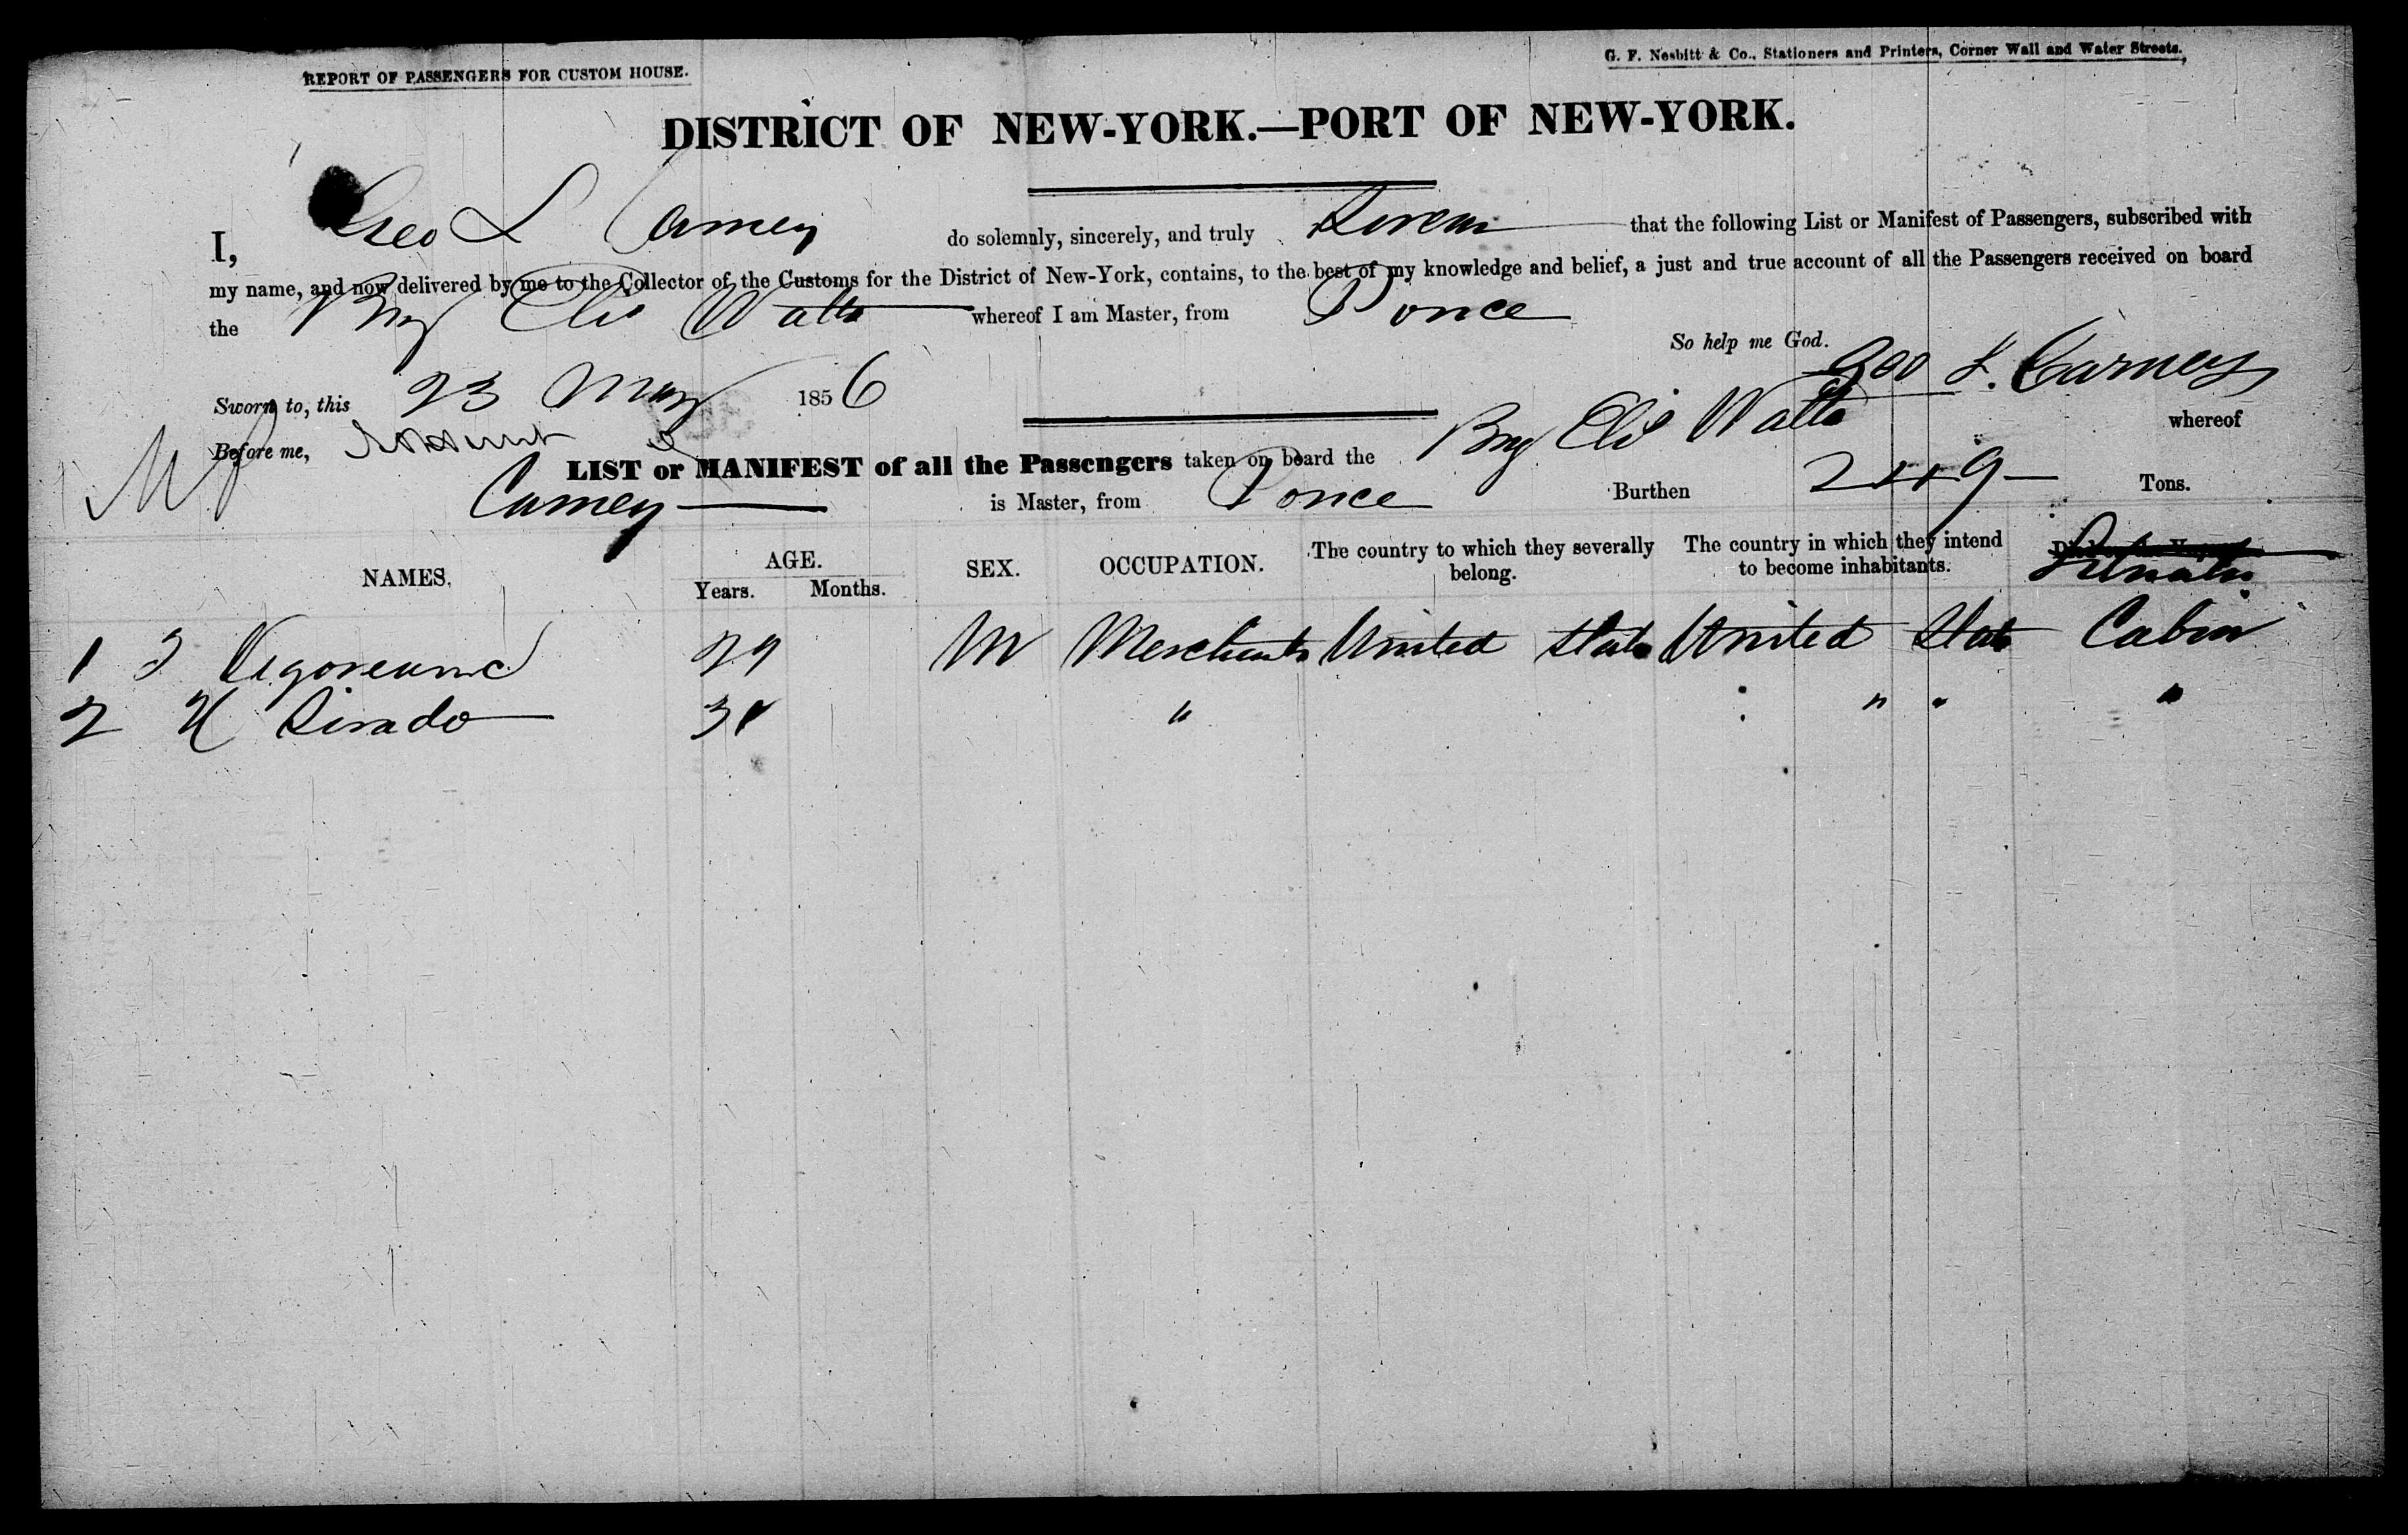 REPORT OF PASSENGERS FOR CUSTOM HOUSE.
G. F. Nesbitt & Co., Stationers and Printers, Corner Wall and Water Streets.
DISTRICT OF NEW-YORK.—PORT OF NEW-YORK.
I, Geo L Carney do solemnly, sincerely, and truly Swear that the following List or Manifest of Passengers, subscribed with
my name, and now delivered by me to the Collector of the Customs for the District of New-York, contains, to the best of my knowledge and belief, a just and true account of all the Passengers received on board
the Brig Watts whereof I am Master, from Ponce
So help me God.
Geo L. Carney
Sworn to, this 23 May 1856
Before me,
LIST or MANIFEST of all the Passengers taken on board the Brig Watts whereof
Carney is Master, from Ponce Burthen 249 Tons.
NAMES. AGE. Years. Months. SEX. OCCUPATION. The country to which they severally belong. The country in which they intend to become inhabitants.
1 29 M Merchants United States United States Cabin
2 H 31 " " " "